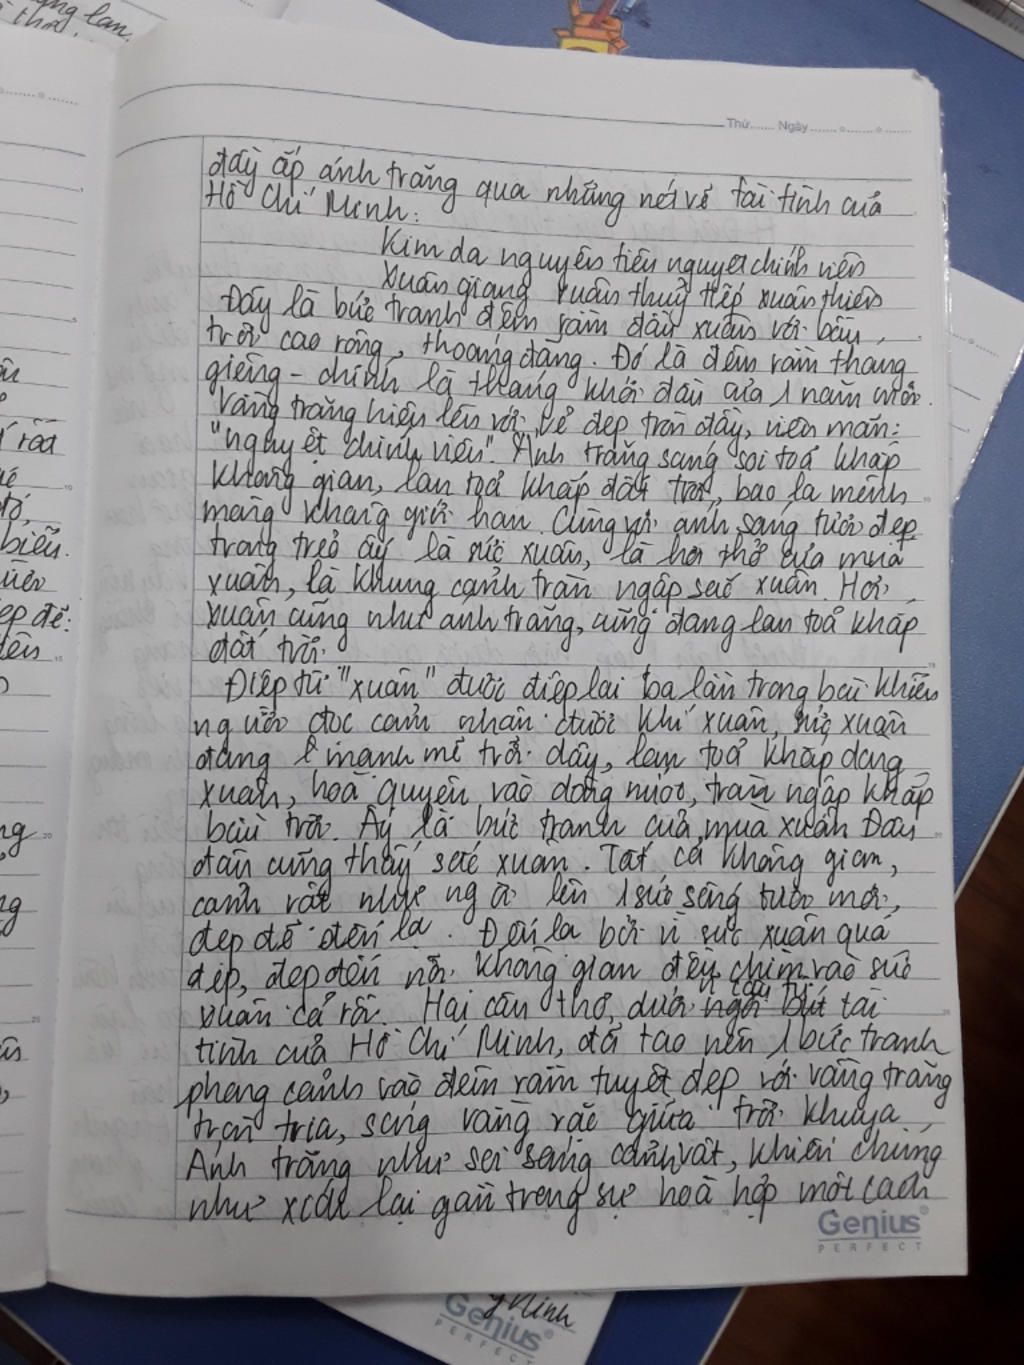 Thứ...... Ngày.......
đầy ắp ánh trăng qua những nét vẽ tài tình của
Hồ Chí Minh:
Kim dạ nguyên tiêu nguyệt chính viên
Xuân giang xuân thuỷ tiếp xuân thiên
Đây là bức tranh đêm rằm đầu xuân với bầu
trời cao rộng, thoáng đãng. Đó là đêm rằm tháng
giêng - chính là tháng khởi đầu của 1 năm mới.
Vầng trăng hiện lên với vẻ đẹp tròn đầy, viên mãn:
"nguyệt chính viên". Ánh trăng sáng soi toả khắp
không gian, lan toả khắp đất trời, bao la mênh
mông không giới hạn. Cùng với ánh sáng tươi đẹp
trong trẻo ấy là sức xuân, là hơi thở của mùa
xuân, là khung cảnh tràn ngập sắc xuân. Hơi
xuân cũng như ánh trăng, cũng đang lan toả khắp
đất trời.
Điệp từ "xuân" được điệp lại ba lần trong bài khiến
người đọc cảm nhận được khí xuân, sức xuân
đang mạnh mẽ trỗi dậy, lan toả khắp dòng
xuân, hoà quyện vào dòng nước, tràn ngập khắp
bầu trời. Ấy là bức tranh của mùa xuân Đâu
đâu cũng thấy sắc xuân. Tất cả không gian,
cảnh vật như ngời lên 1 sức sống tươi mới,
đẹp đẽ đến lạ. Đến lạ bởi vì sức xuân quá
đẹp, đẹp đến nỗi không gian đều chìm vào sắc
xuân cả rồi. Hai câu thơ, dưới ngòi bút tài
tình của Hồ Chí Minh, đã tạo nên 1 bức tranh
phong cảnh vào đêm rằm tuyệt đẹp với vầng trăng
tròn trịa, sáng vằng vặc giữa trời khuya
Ánh trăng như soi sáng cảnh vật, khiến chúng
như xích lại gần trong sự hoà hợp một cách
Genius
PERFECT
Genius
PERFECT